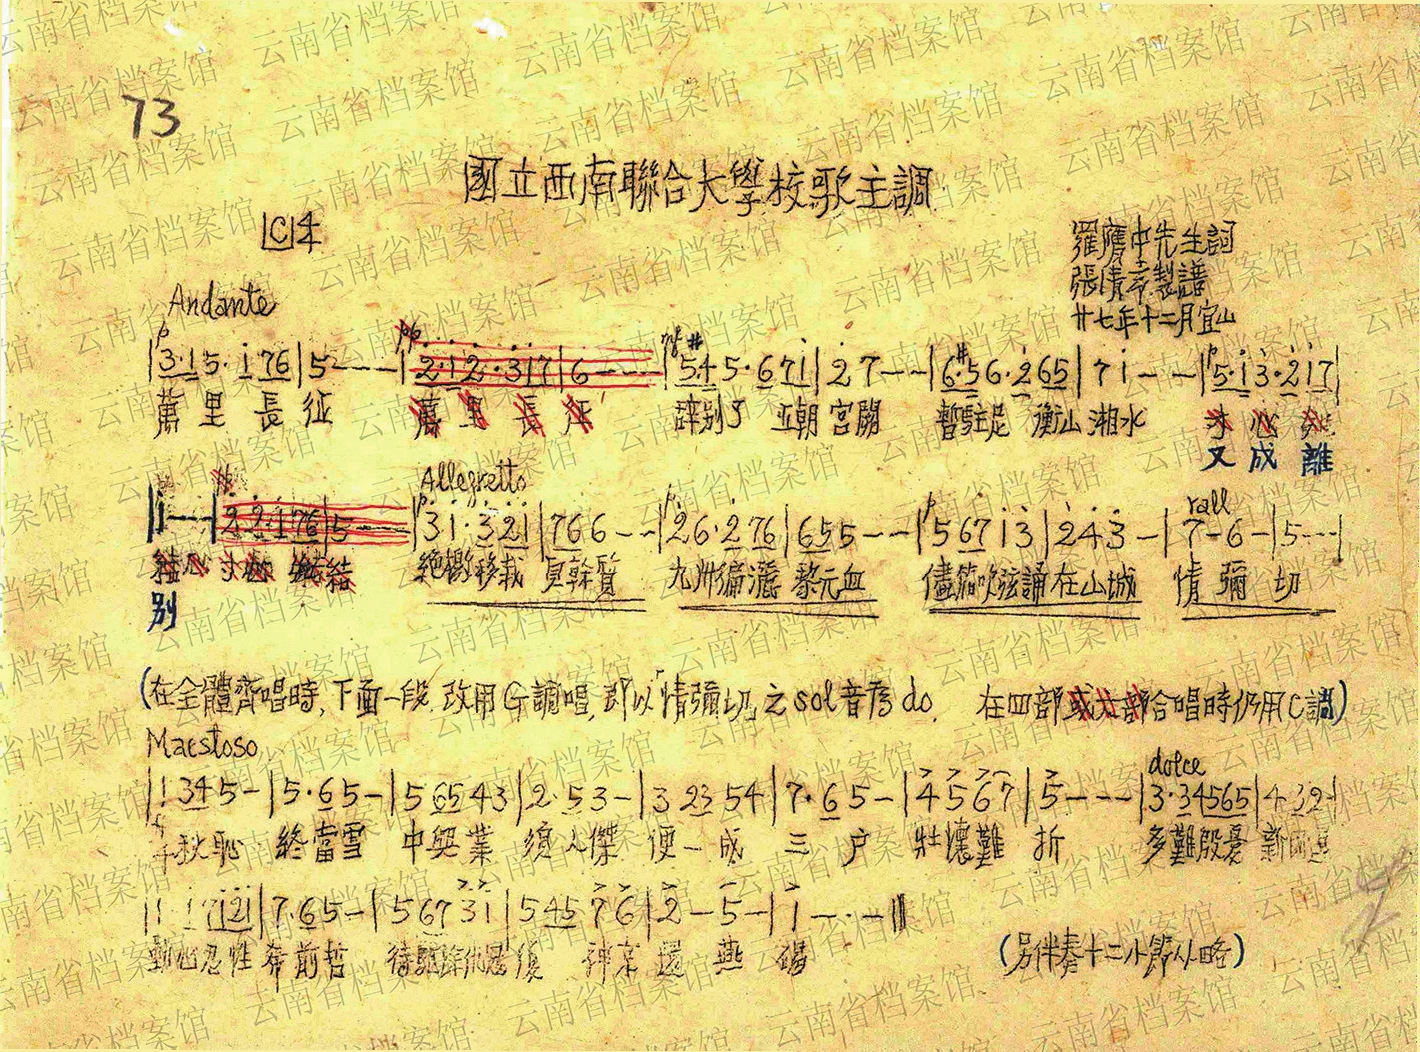 73
國立西南聯合大學校歌主調
C4/4
羅膺中先生詞
張清常製譜
廿七年十二月宜山
Andante
p pp mf p
|3·15·i 76|5---|2·12·317|6---|#545·671|27--|6·#56·265|7i--|5·i3·217|
萬里長征 萬里長征 辭別了五朝宮闕 暫駐足衡山湘水 寸心
又成離
Allegretto rall
|i---|22·176|5---|3i·321|766--|26·276|655--|567i3|243-|7-6-|5---|
絕徼移栽 貞幹質 九州徧灑 黎元血 儘笳吹弦誦在山城 情彌切
別
(在全體齊唱時,下面一段,改用G調唱,即以「情彌切」之sol音爲do. 在四部或六部合唱時仍用C調)
Maestoso dolce
|1345-|5·65-|56543|2·53-|32354|7·65-|4567|5---|3·34565|432-|
千秋恥 終當雪 中興業 須人傑 便一成 三户 壯懷難折 多難殷憂新國運
|1 17121|7·65-|56731|54576|2-5-|i---||
動心忍性希前哲 待驅除仇寇復神京還燕碣
(另伴奏十二小節从略)
云南省档案馆